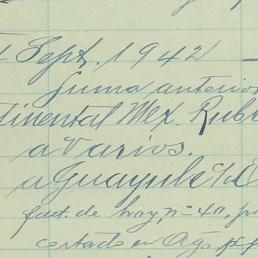 Sept. 1942
Suma anterior
tinental Mex. Rub
a Varios.
a Guayule c/o
fact. de hoy, n=40, p
cortado en Ago.